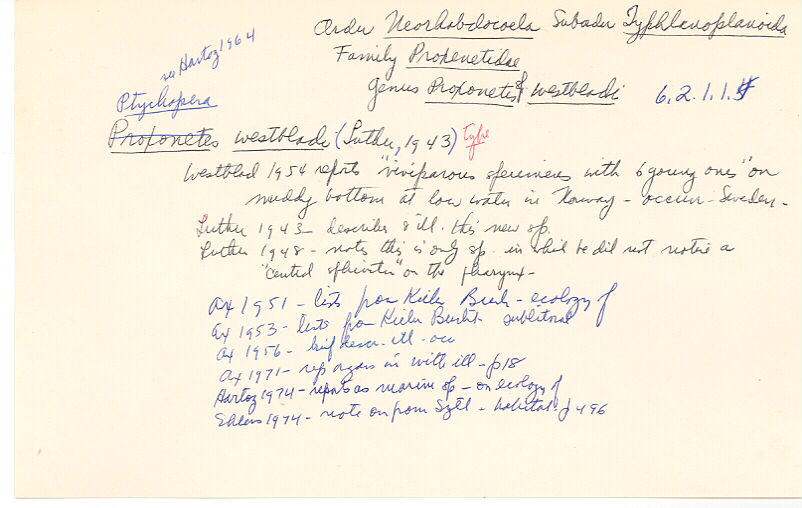 Order Neorhabdocoela Suborder Typhloplanoida
Family Proxenetidae
Genus Proxenetes of westbladi 6.2.1.1.
see Hartog 1964
Ptychopera
Proxenetes westbladi (Luther, 1943) type
Westblad 1954 reports "viviparous specimens with 6 young ones" on
muddy bottom at low water in Norway - occurs - Sweden -
Luther 1943 - describes & ill. this new sp.
Luther 1948 - notes this is only sp. in which he did not notice a
"central sphincter" on the pharynx -
Ax 1951 - lists from Kieler Bucht - ecology of
Ax 1953 - lists from Kieler Bucht - sublitoral
Ax 1956 - brief descr - ill - occ
Ax 1971 - rep organs in with ill - p 18
Hartog 1974 - reports as marine sp - on ecology of
Ehlers 1974 - note on from Sylt - habitat - p 496